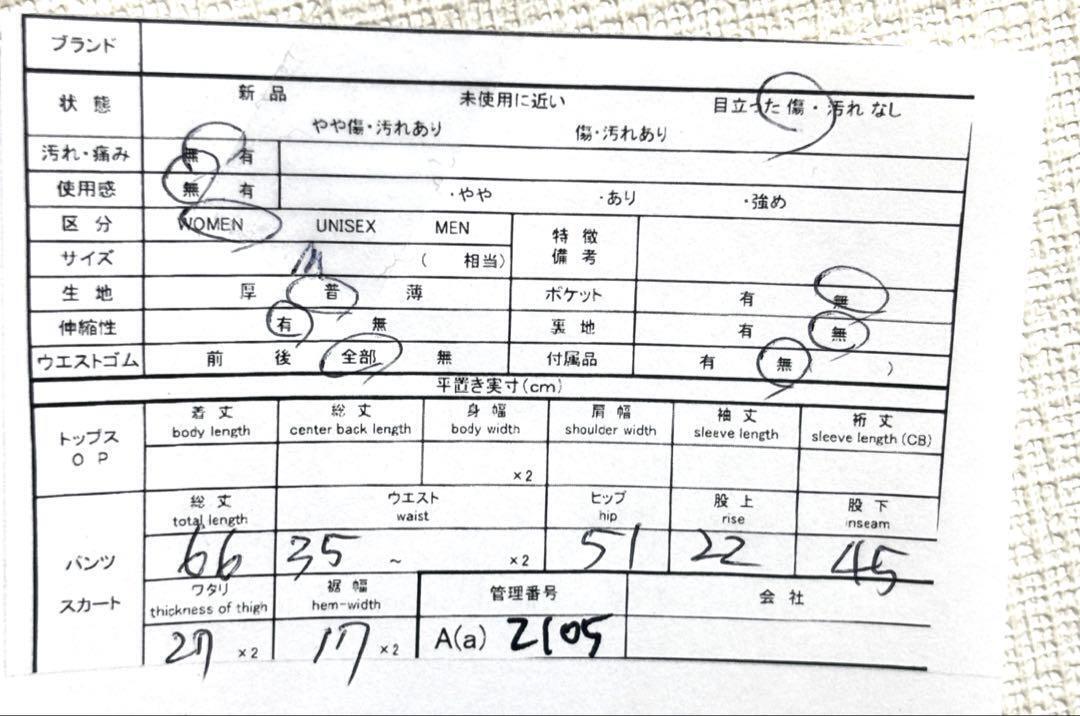 ブランド
状態 新品 未使用に近い 目立った傷・汚れなし
やや傷・汚れあり 傷・汚れあり
汚れ・痛み 無 有
使用感 無 有 ・やや ・あり ・強め
区分 WOMEN UNISEX MEN 特徴
備考
サイズ M ( 相当)
生地 厚 普 薄 ポケット 有 無
伸縮性 有 無 裏地 有 無
ウエストゴム 前 後 全部 無 付属品 有 無 )
平置き実寸(cm)
トップス
OP
着丈 総丈 身幅 肩幅 袖丈 裄丈
body length center back length body width shoulder width sleeve length sleeve length (CB)
×2
パンツ
スカート
総丈 ウエスト ヒップ 股上 股下
total length waist hip rise inseam
66 35 ~ ×2 51 22 45
ワタリ 裾幅 管理番号 会社
thickness of thigh hem-width
27 ×2 17 ×2 A(a) 2105